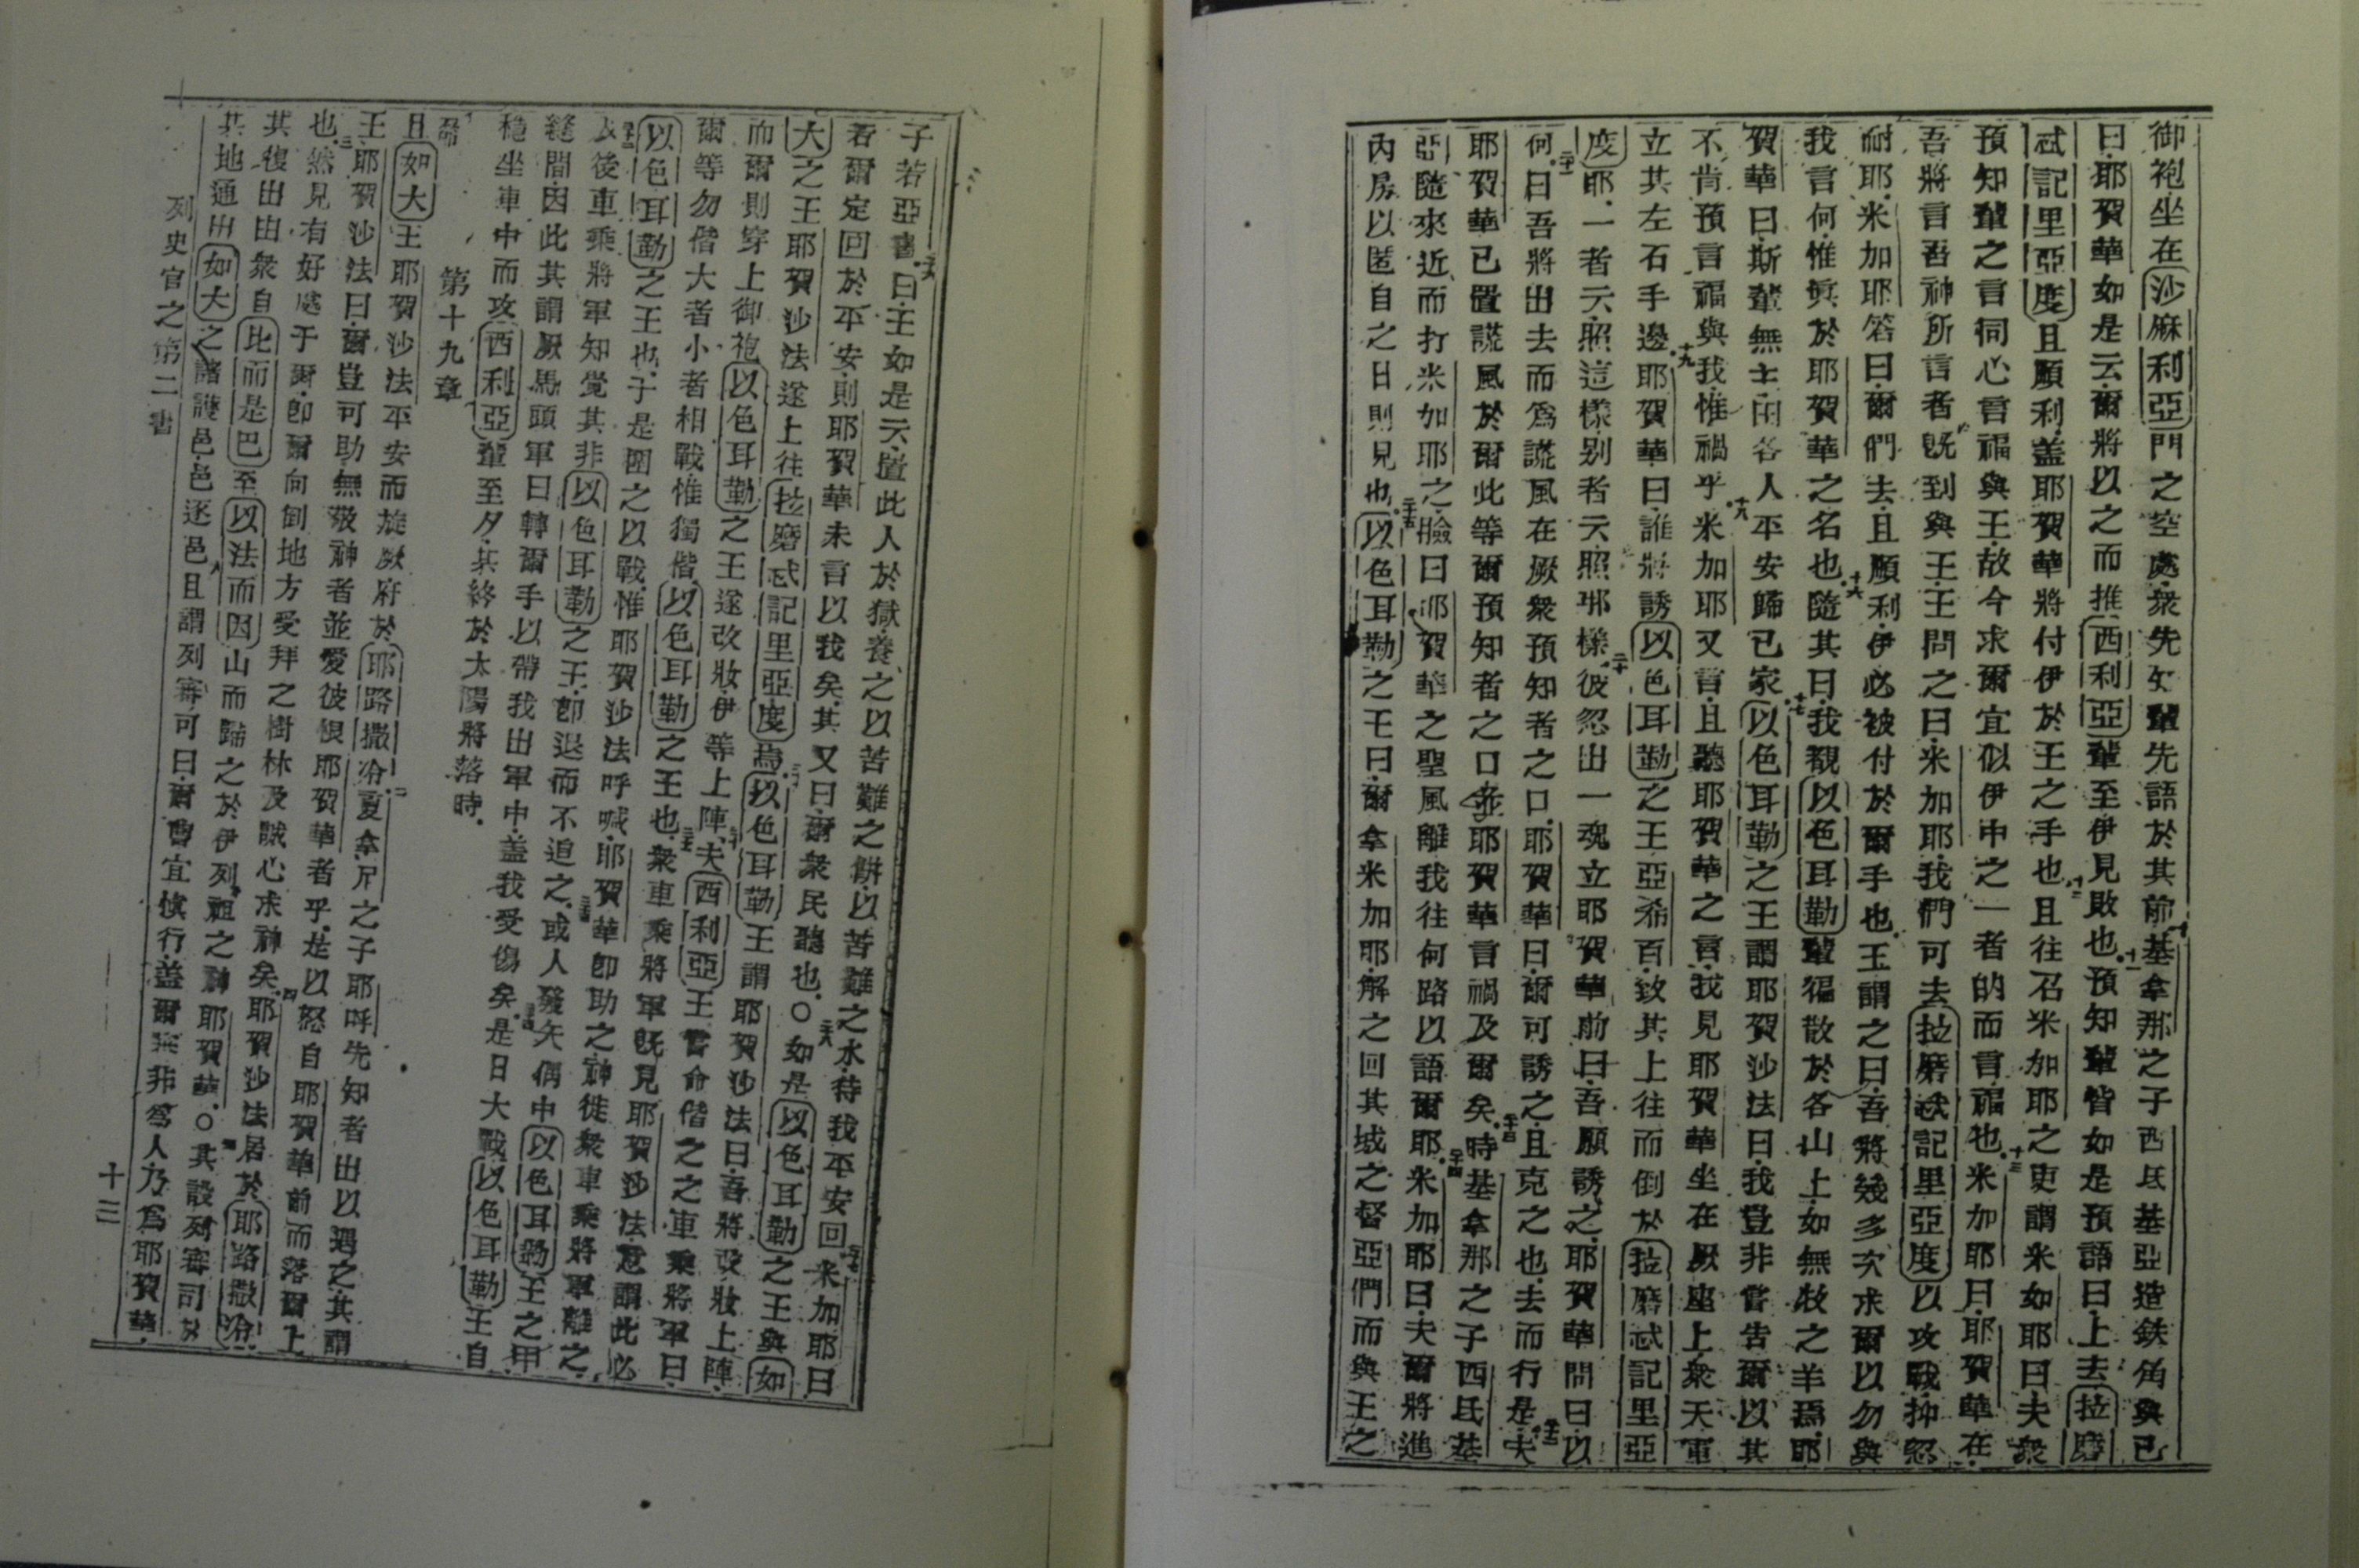 御袍坐在沙麻利亞門之空處衆先知輩先語於其前十基拿那之子西氐基亞造鉄角與已
曰耶賀華如是云爾將以之而推西利亞輩至伊見敗也十一預知輩皆如是預語曰上去拉磨
忒記里亞度且願利盖耶賀華將付伊於王之手也十二且往召米加耶之吏謂米如耶曰夫衆
預知輩之言同心言福與王故今求爾宜似伊中之一者的而言福也十三米加耶曰耶賀華在
吾將言吾神所言者既到與王王問之曰米加耶我們可去拉磨忒記里亞度以攻戰抑忍
耐耶米加耶答曰爾們去且願利伊必被付於爾手也王謂之曰吾將幾多次求爾以勿與
我言何惟眞於耶賀華之名也十六隨其曰我覩以色耳勒輩徧散於各山上如無牧之羊焉耶
賀華曰斯輩無主由各人平安歸已家十七以色耳勒之王謂耶賀沙法曰我豈非嘗告爾以其
不肯預言福與我惟禍乎十八米加耶又言且聽耶賀華之言我見耶賀華坐在厥座上衆天軍
立其左右手邊十九耶賀華曰誰將誘以色耳勒之王亞希百致其上往而倒於拉磨忒記里亞
度耶一者云照這樣别者云照那樣二十彼忽出一魂立耶賀華前曰吾願誘之耶賀華問曰以
何二十一曰吾將出去而爲謊風在厥衆預知者之口耶賀華曰爾可誘之且克之也去而行是二十二夫
耶賀華已置謊風於爾此等爾預知者之口並耶賀華言禍及爾矣二十三時基拿那之子西氐基
亞隨來近而打米加耶之臉曰耶賀華之聖風離我往何路以語爾耶二十四米加耶曰夫爾將進
內房以匿自之日則見也二十五以色耳勒之王曰爾拿米加耶解之回其城之督亞們而與王之
子若亞書二十六曰王如是云置此人於獄養之以苦難之餅以苦難之水待我平安回二十七米加耶曰
若爾定回於平安則耶賀華未言以我矣其又曰爾衆民聽也○二十八如是以色耳勒之王與如
大之王耶賀沙法遂上往拉磨忒記里亞度焉二十九以色耳勒王謂耶賀沙法曰吾將改妝上陣
而爾則穿上御袍以色耳勒之王遂改妝伊等上陣三十夫西利亞王嘗命偕之之車乘將軍曰
爾等勿偕大者小者相戰惟獨偕以色耳勒之王也三十一衆車乘將軍既見耶賀沙法意謂此必
以色耳勒之王也于是圍之以戰惟耶賀沙法呼喊耶賀華即助之神徙衆車乘將軍離之
三十二後車乘將軍知覺其非以色耳勒之王即退而不追之三十三或人發矢偶中以色耳勒王之甲
縫間因此其謂厥馬頭軍曰轉爾手以帶我出軍中盖我受傷矣三十四是日大戰以色耳勒王自
穩坐車中而攻西利亞輩至夕其終於太陽將落時
第十九章
且如大王耶賀沙法平安而旋厥府於耶路撒冷二夏拿尼之子耶呼先知者出以遇之其謂
王耶賀沙法曰爾豈可助無敬神者並愛彼恨耶賀華者乎是以怒自耶賀華前而落爾上
也三然見有好處于爾即爾向倒地方受拜之樹林及誠心求神矣四耶賀沙法居於耶路撒冷
其復出由衆自比而是巴至以法而因山而歸之於伊列祖之神耶賀華○五其設列審司於
其地通出如大之諸護邑邑逐邑六且謂列審司曰爾曹宜愼行盖爾審非爲人乃爲耶賀華
列史官之第二書
十三